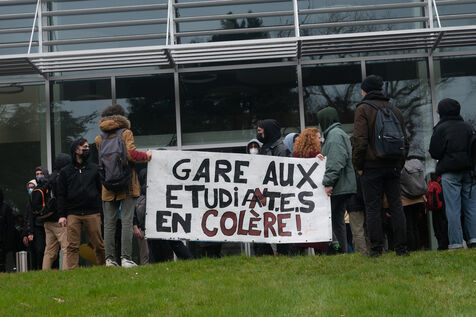 GARE AUX
ETUDIANTES
EN COLÈRE!